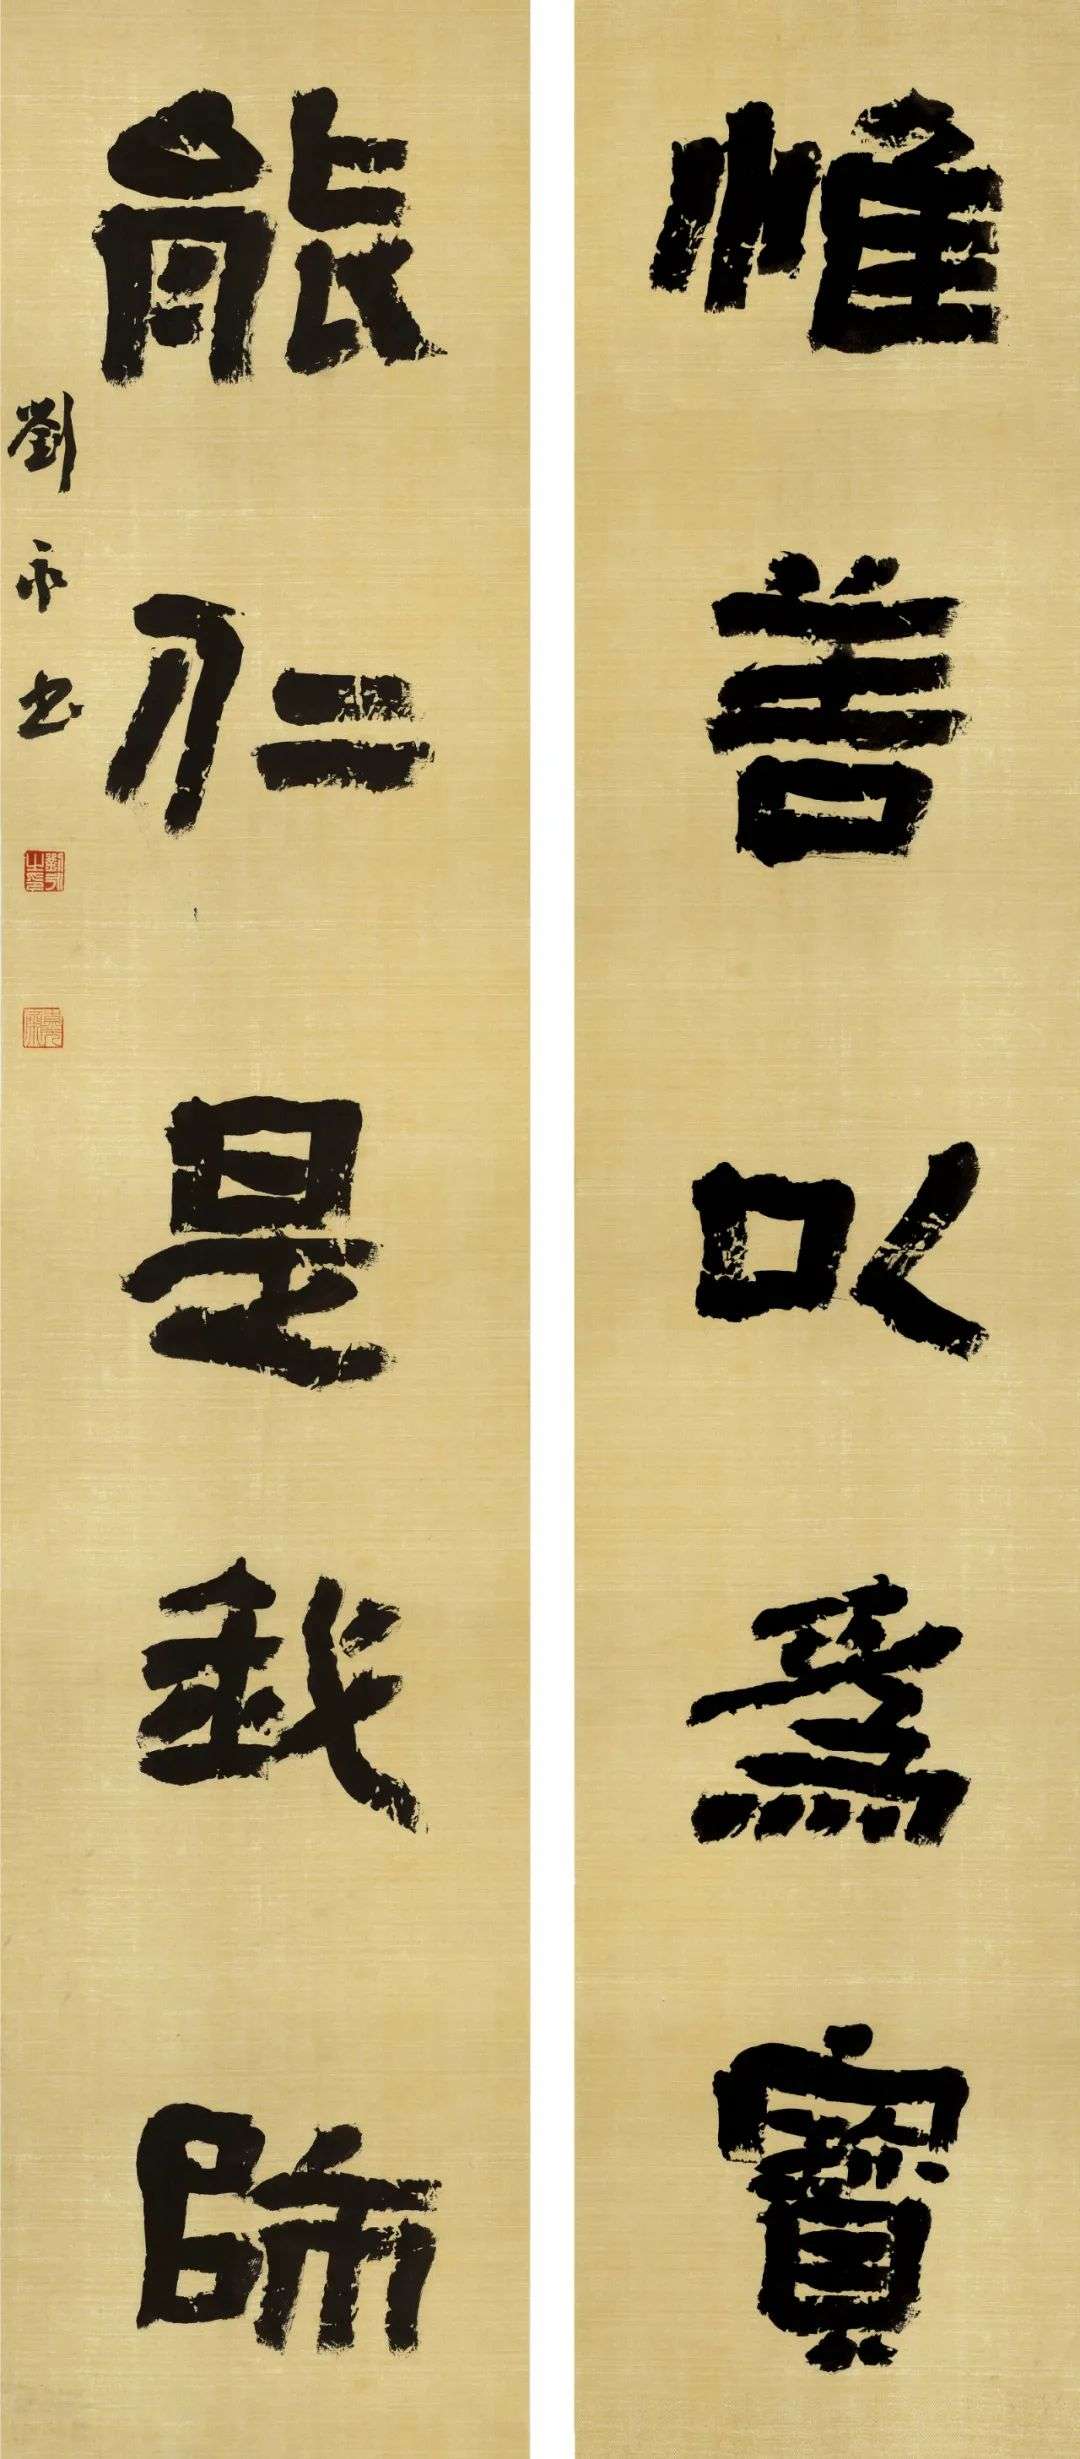 惟善以為寶
能仁是我師
劉永書